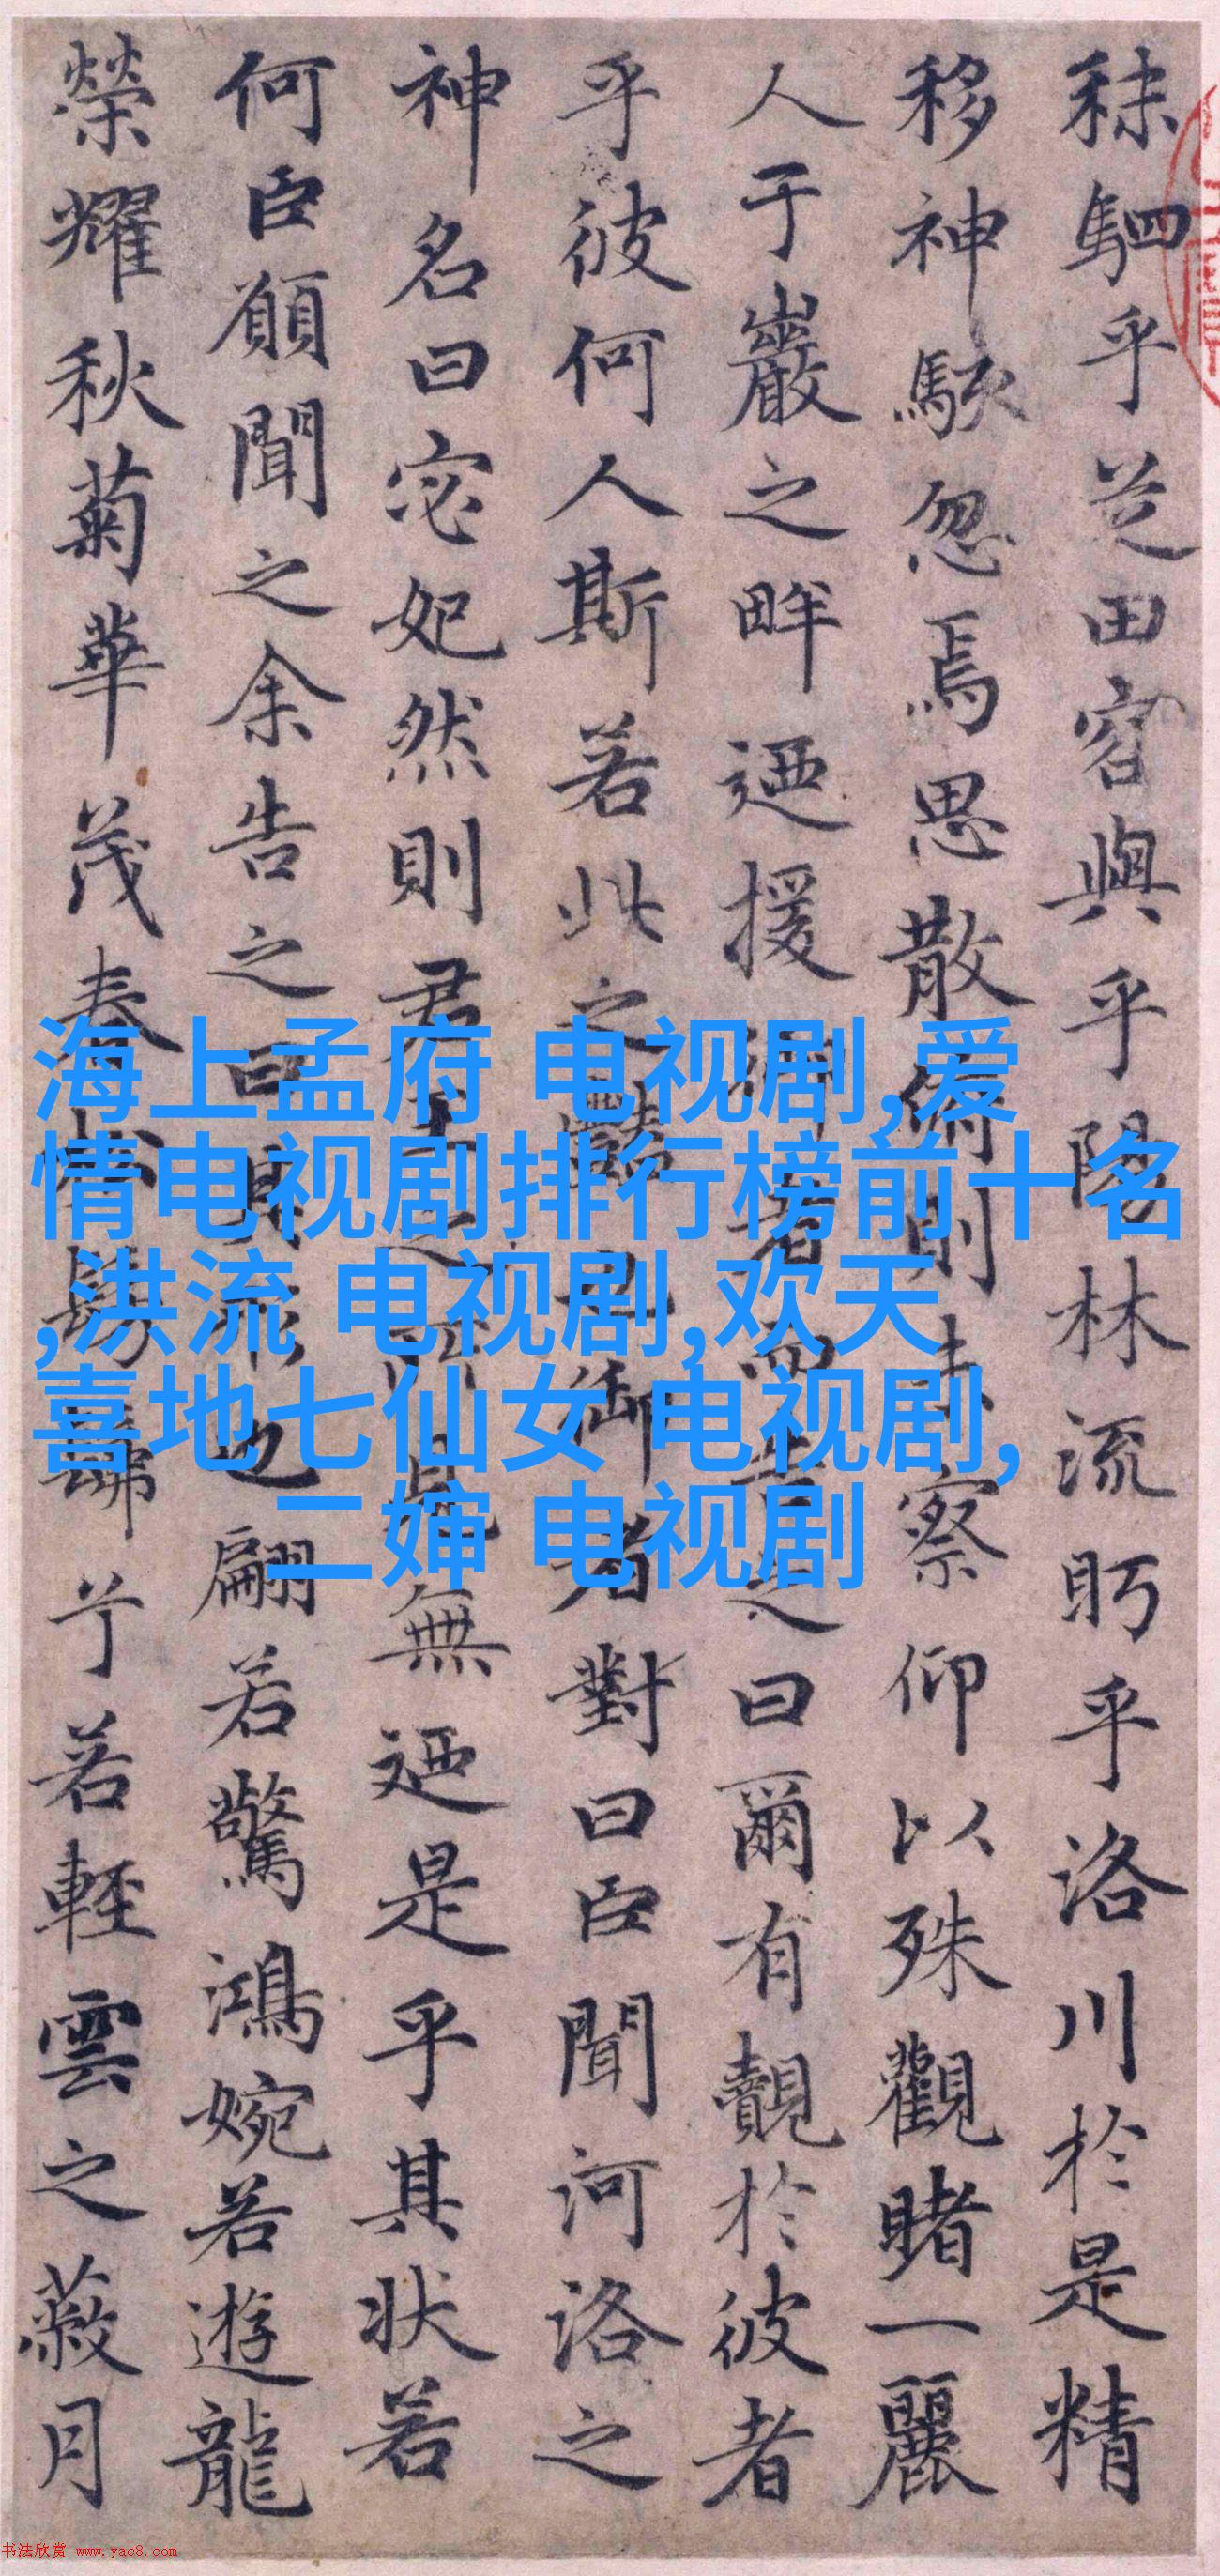 秣駟乎芝田容與乎陽林流眄乎洛川於是精
移神駭忽焉思散俯則未察仰以殊觀睹一麗
人于巖之畔迺援御者而告之曰爾有覿於彼者
乎彼何人斯若此之豔也御者對曰臣聞河洛之
神名曰宓妃然則君王之所見無迺是乎其狀若
何臣願聞之余告之曰其形也翩若驚鴻婉若遊龍
榮耀秋菊華茂春松髣髴兮若輕雲之蔽月
海上孟府 电视剧,爱
情电视剧排行榜前十名
,洪流 电视剧,欢天
喜地七仙女 电视剧,
二婶 电视剧
书法欣赏 www.yac8.com